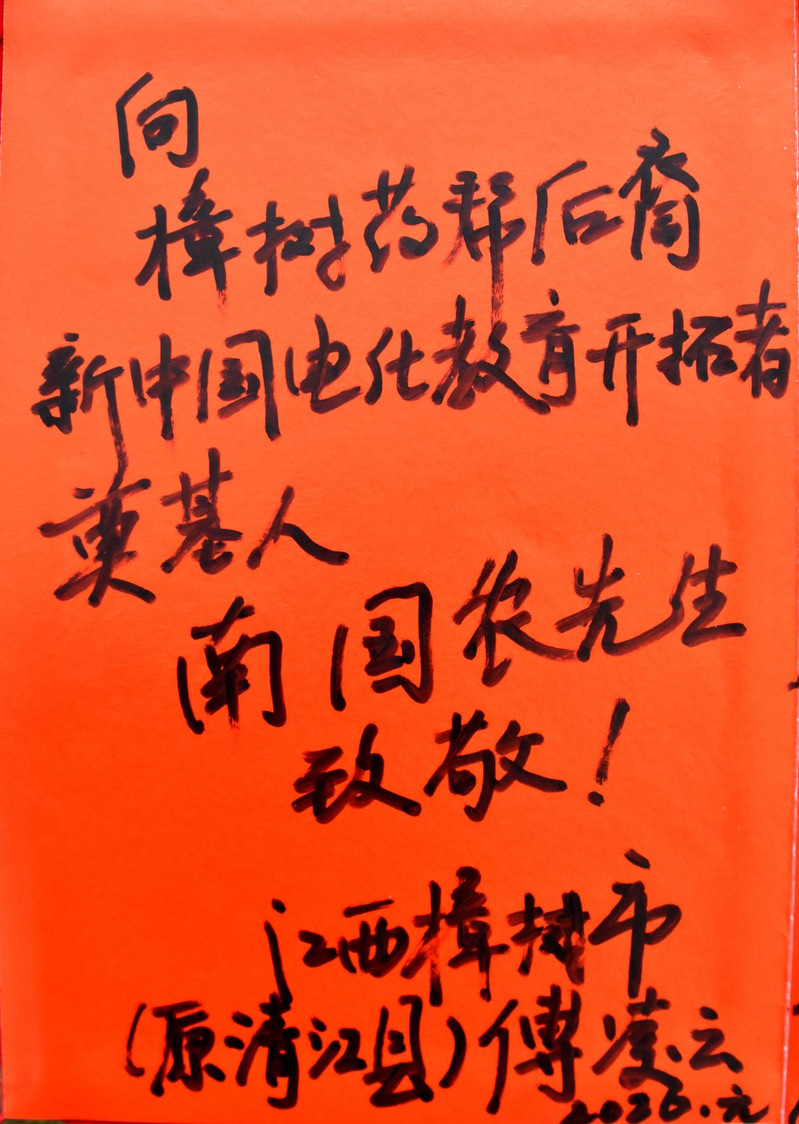 向
樟树药帮后裔
新中国电化教育开拓者
奠基人
南国农先生
致敬！
江西樟树市
（原清江县）傅凌云
2026.元